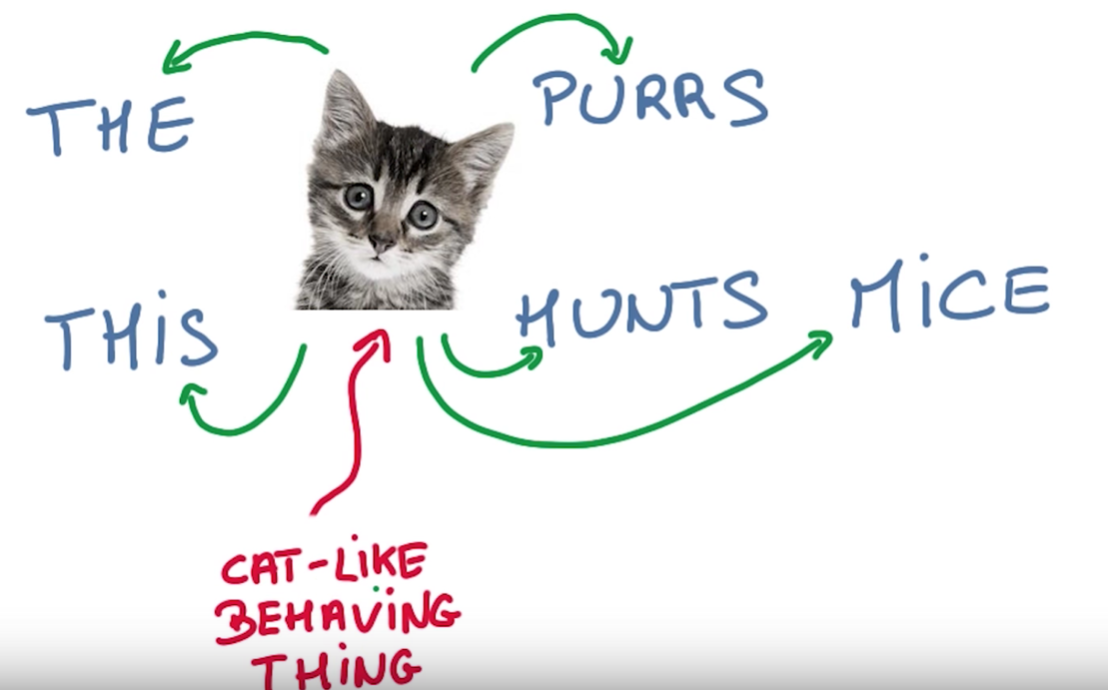 THE PURRS
THIS HUNTS MICE
CAT-LIKE
BEHAVING
THING